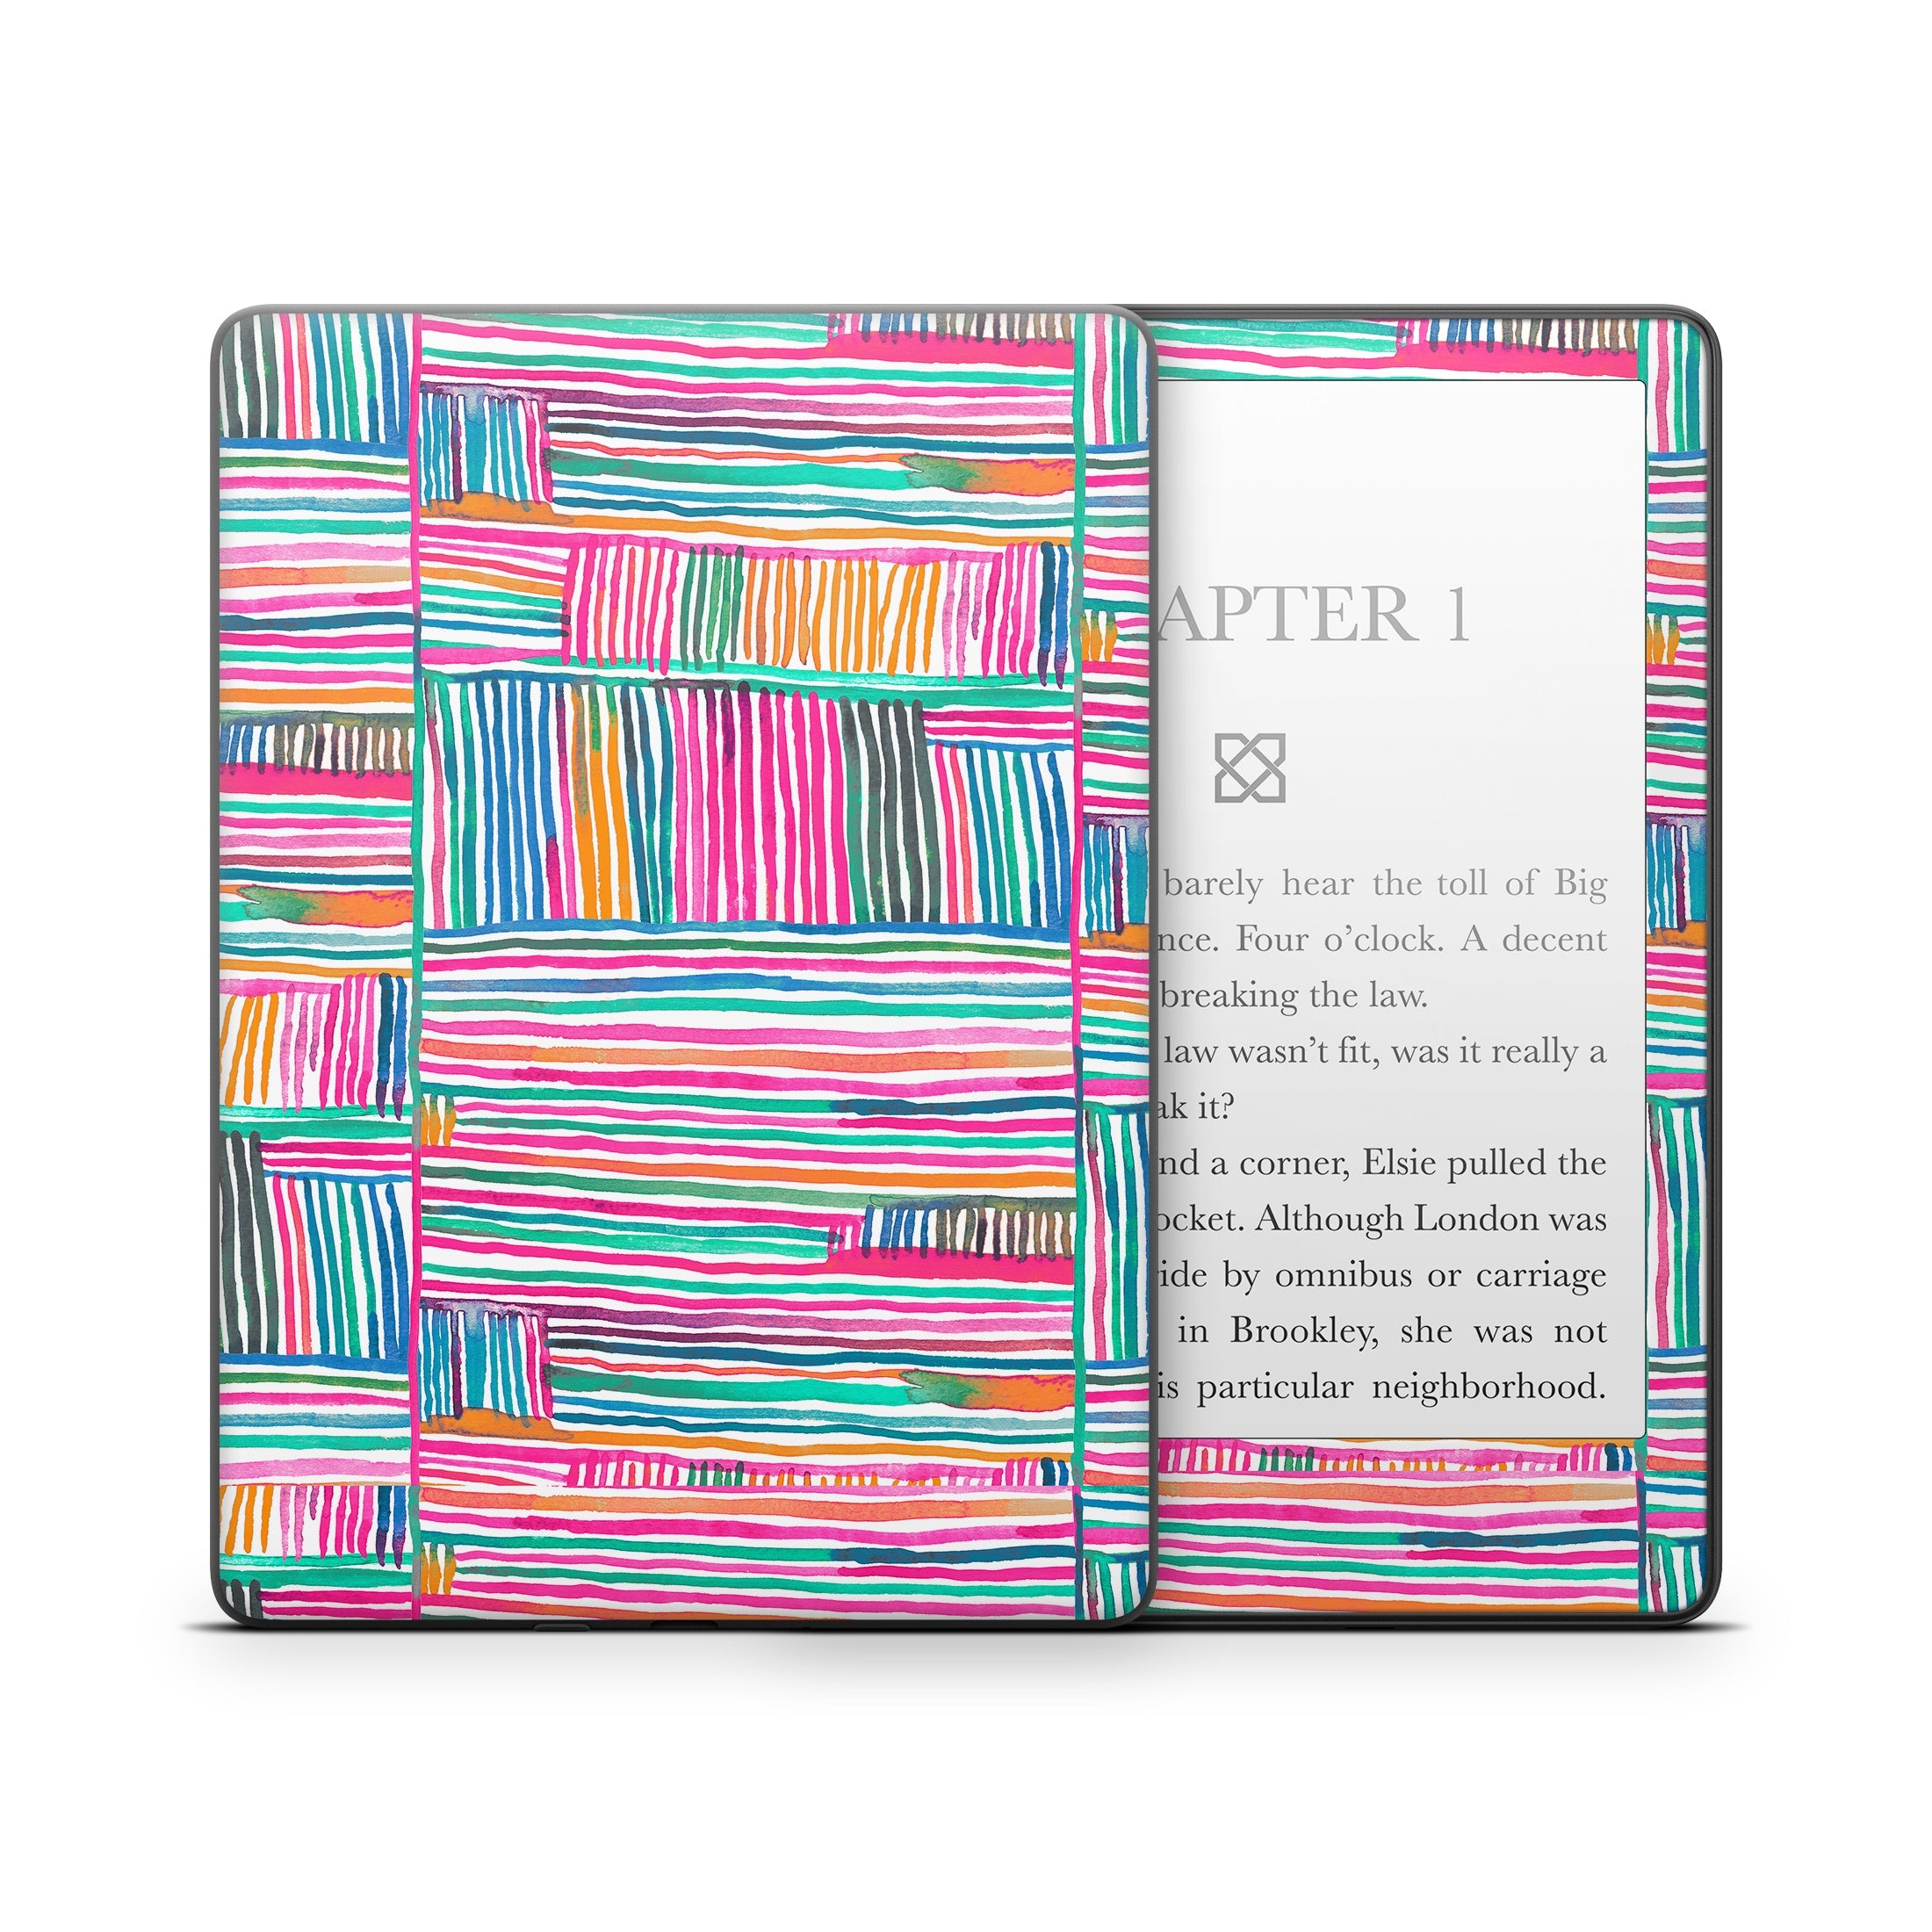 APTER 1
barely hear the toll of Big
nce. Four o’clock. A decent
breaking the law.
law wasn’t fit, was it really a
ak it?
nd a corner, Elsie pulled the
ocket. Although London was
ride by omnibus or carriage
in Brookley, she was not
is particular neighborhood.